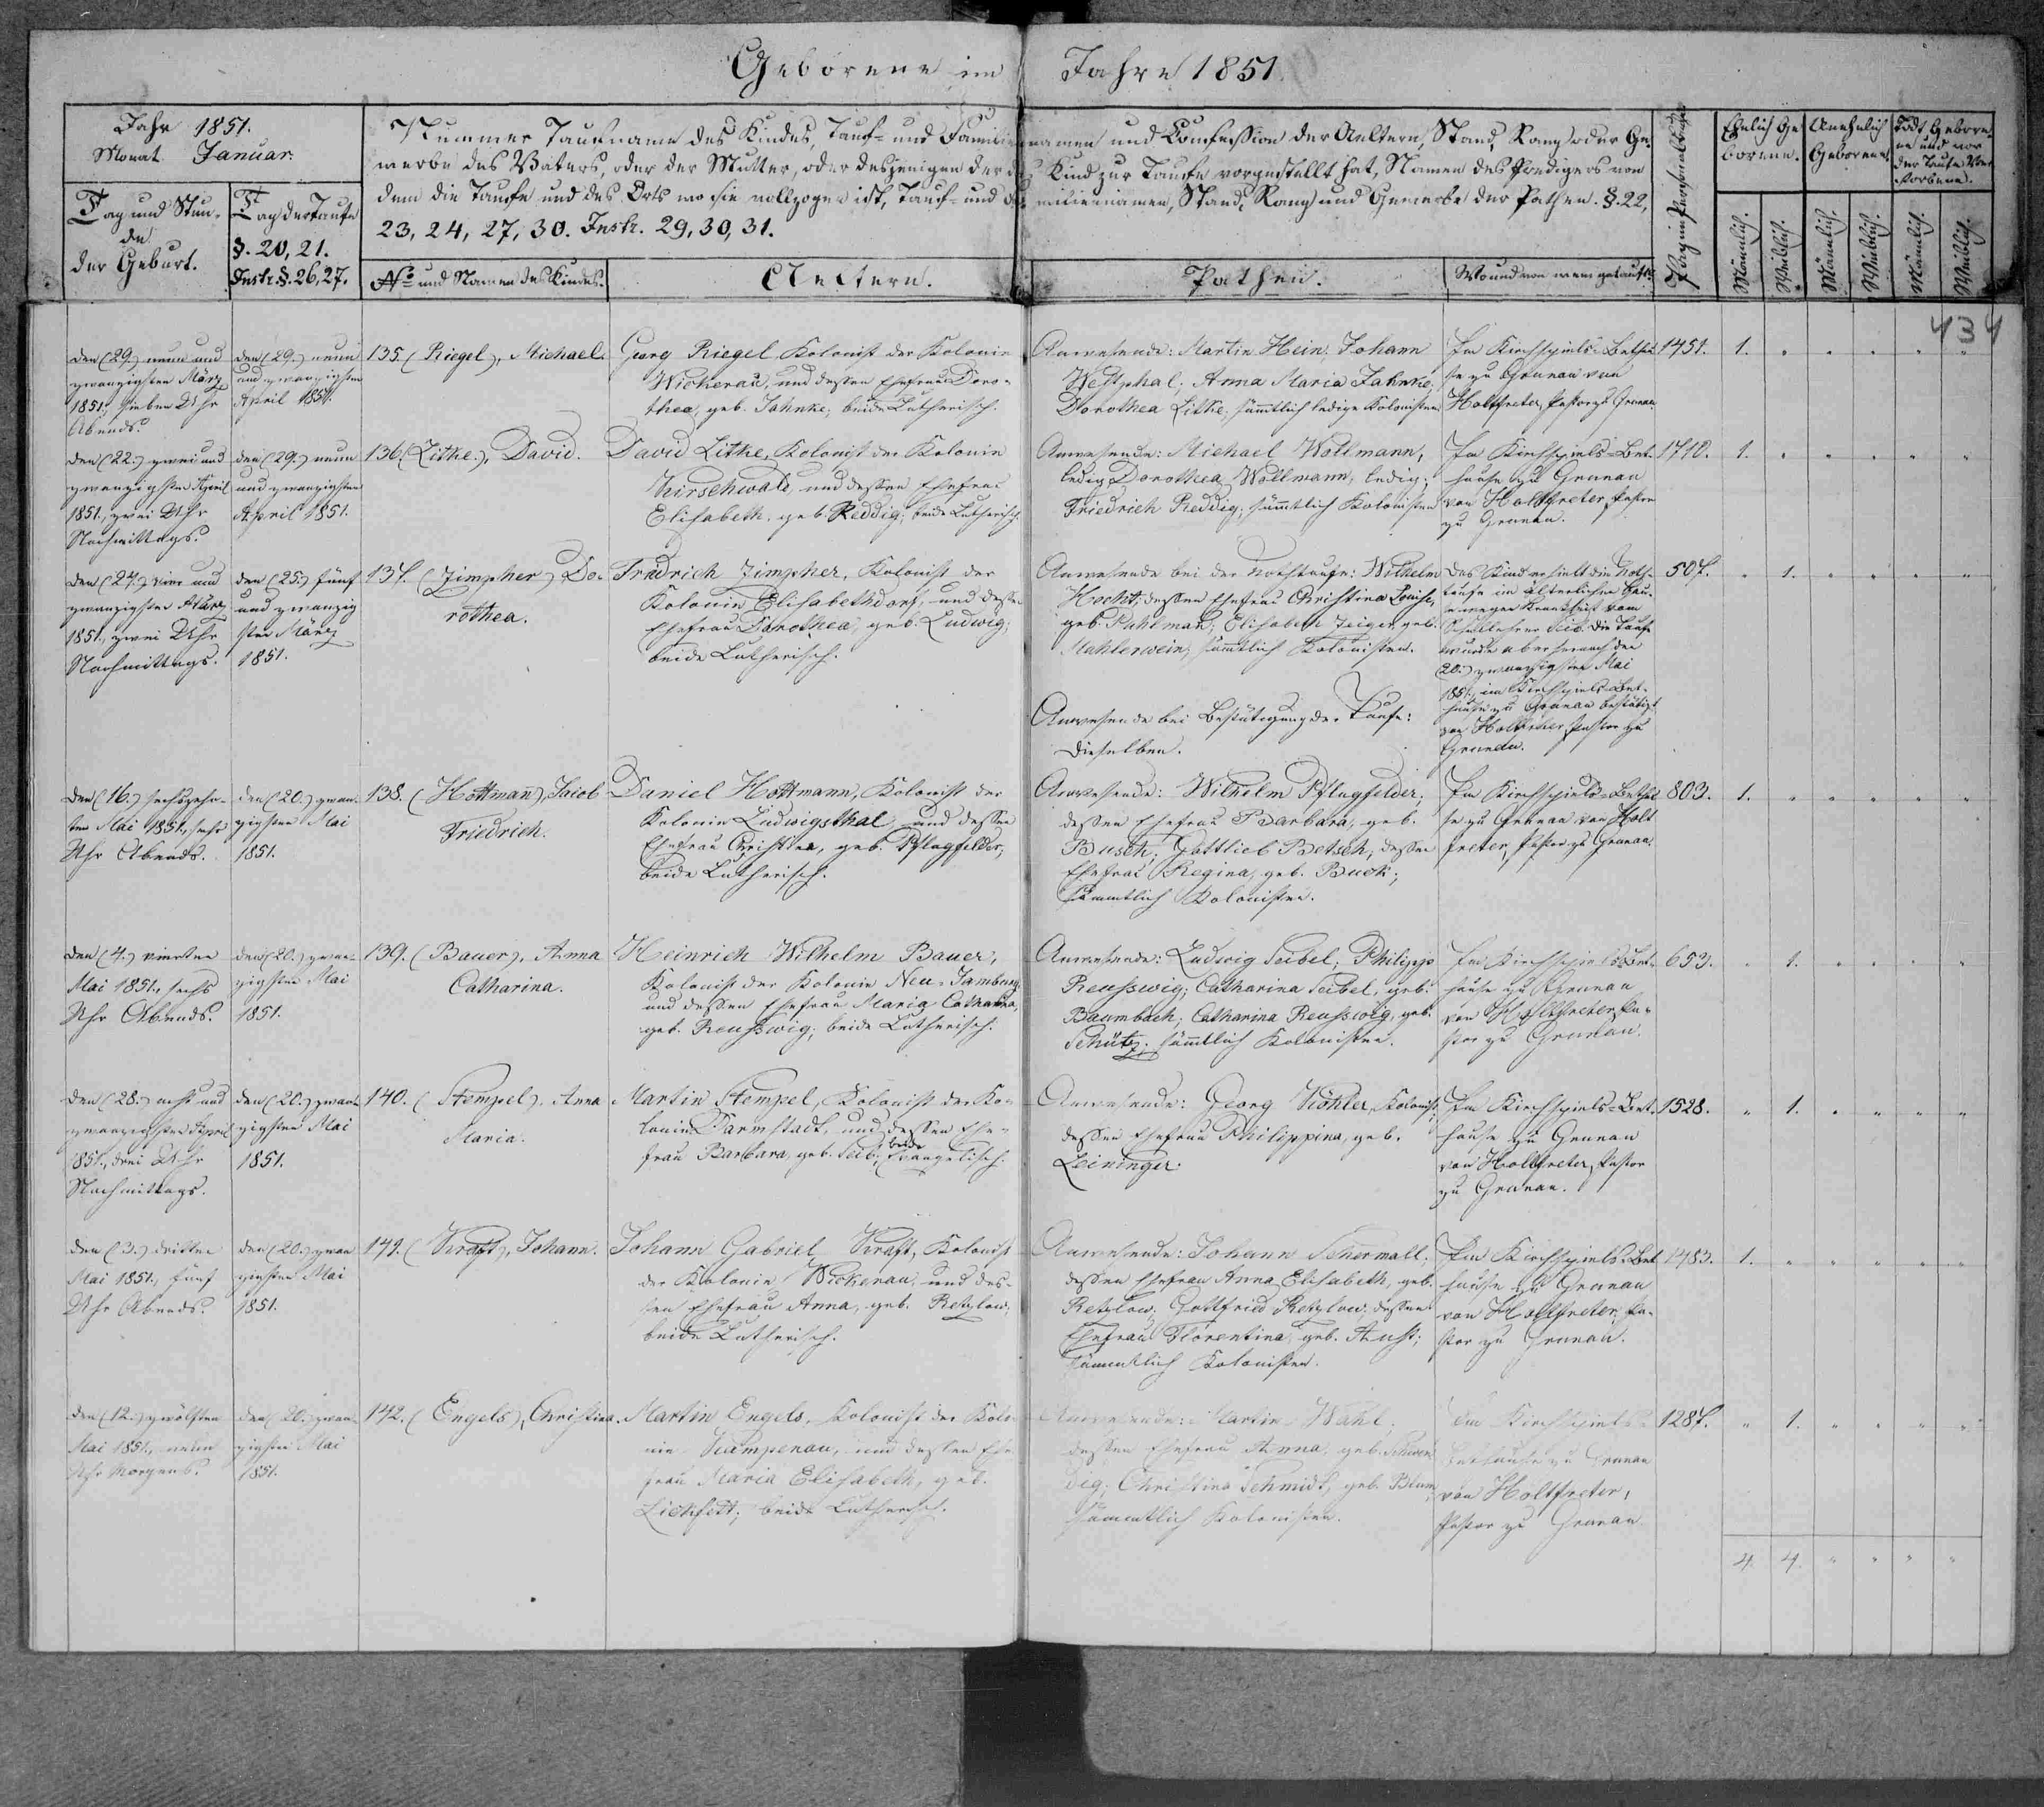 Geborene im Jahre 1851.
Jahr 1851.
Monat Januar.
Tag und Stun-
de
der Geburt.
Tag der Taufe
§. 20, 21.
Instr. §. 26, 27.
Nummer Taufname des Kindes, Tauf- und Familiennamen und Confession der Aeltern, Stand, Rang oder Ge-
werbe des Vaters, oder der Mutter, oder desjenigen der das Kind zur Taufe vorgestellt hat, Namen des Predigers von
dem die Taufe und des Orts wo sie vollzogen ist, Tauf- und Familiennamen, Stand, Rang und Gewerbe der Pathen. §. 22,
23, 24, 27, 30. Instr. 29, 30, 31.
No und Namen des Kindes.
Aeltern.
Pathen.
Wo und von wem getauft.
Ehelich Ge-
borene.
Unehelich
Geborene.
Todt Gebore-
ne und vor
der Taufe Ver-
storbene.
Männlich.
Weiblich.
Männlich.
Weiblich.
Männlich.
Weiblich.
434
den (29.) neun und
zwanzigsten März
1851, sieben Uhr
Abends.
den (29.) neun
und zwanzigsten
April 1851.
135. (Riegel), Michael.
Georg Riegel, Kolonist der Kolonie
Wickerau, und dessen Ehefrau Doro-
thea, geb. Jahnke; beide Lutherisch.
Anwesende: Martin Hein, Johann
Westphal; Anna Maria Jahnke,
Dorothea Litke, sämmtlich ledige Kolonisten
Im Kirchspiels-Bethau-
se zu Grunau von
Holtfreter, Pastor zu Grunau.
1451. 1.
den (22.) zwei und
zwanzigsten April
1851, zwei Uhr
Nachmittags.
den (29.) neun
und zwanzigsten
April 1851.
136. (Litke), David.
David Litke, Kolonist der Kolonie
Kirschwald, und dessen Ehefrau
Elisabeth, geb. Reddig; beide Lutherisch.
Anwesende: Michael Wollmann,
ledig; Dorothea Wollmann, ledig;
Friedrich Reddig; sämmtlich Kolonisten
Im Kirchspiels-Bet-
hause zu Grunau
von Holtfreter, Pastor
zu Grunau.
1710. 1.
den (24.) vier und
zwanzigsten März
1851, zwei Uhr
Nachmittags.
den (25.) fünf
und zwanzig
sten März
1851.
137. (Zimpher), Do-
rothea.
Friedrich Zimpher, Kolonist der
Kolonie Elisabethdorf, und dessen
Ehefrau Dorothea, geb. Ludwig;
beide Lutherisch.
Anwesende bei der Nothtaufe: Wilhelm
Hecht; dessen Ehefrau Christina Louise,
geb. Puhlman; Elisabeth Zeiger geb.
Mahlerwein; sämmtlich Kolonisten.
Anwesende bei Bestätigung der Taufe:
Dieselben.
Das Kind erhielt die Noth-
taufe im älterlichen Hau-
se wegen Krankheit vom
Schullehrer Seib. Die Taufe
wurde aber hernach den
(20.) zwanzigsten Mai
1851, im Kirchspiels-Bet-
hause zu Grunau bestätigt
von Holtfreter, Pastor zu
Grunau.
507. 1.
den (16.) sechszehn-
ten Mai 1851, sechs
Uhr Abends.
den (20.) zwan-
zigsten Mai
1851.
138. (Hottmann), Jacob
Friedrich.
Daniel Hottmann, Kolonist der
Kolonie Ludwigsthal, und dessen
Ehefrau Christina, geb. Pflugfelder;
beide Lutherisch.
Anwesende: Wilhelm Pflugfelder;
dessen Ehefrau Barbara, geb.
Busch; Gottlieb Betsch, dessen
Ehefrau Regina, geb. Buck;
sämmtlich Kolonisten.
Im Kirchspiels-Bethau
se zu Grunau von Holt
freter, Pastor zu Grunau.
803. 1.
den (4.) vierten
Mai 1851, sechs
Uhr Abends.
den (20.) zwan-
zigsten Mai
1851.
139. (Bauer), Anna
Catharina.
Heinrich Wilhelm Bauer,
Kolonist der Kolonie Neu-Jamburg
und dessen Ehefrau Maria Catharina,
geb. Reusswig; beide Lutherisch.
Anwesende: Ludwig Seibel; Philipp
Reusswig; Catharina Seibel, geb.
Baumbach; Catharina Reusswig, geb.
Schütz; sämmtlich Kolonisten.
Im Kirchspiels-Bet-
hause zu Grunau
von Holtfreter, Pa-
stor zu Grunau.
653. 1.
den (28.) acht und
zwanzigsten April
1851, drei Uhr
Nachmittags.
den (20.) zwan-
zigsten Mai
1851.
140. (Stempel), Anna
Maria.
Martin Stempel, Kolonist der Ko-
lonie Darmstadt, und dessen Ehe-
frau Barbara, geb. Seib; beide Evangelisch.
Anwesende: Georg Köhler, Kolonist;
dessen Ehefrau Philippina, geb.
Leininger.
Im Kirchspiels-Bet-
hause zu Grunau
von Holtfreter, Pastor
zu Grunau.
1528. 1.
den (3.) dritten
Mai 1851, fünf
Uhr Abends.
den (20.) zwan
zigsten Mai
1851.
141. (Kraft), Johann.
Johann Gabriel Kraft, Kolonist
der Kolonie Wickerau, und des-
sen Ehefrau Anna, geb. Retzlow;
beide Lutherisch.
Anwesende: Johann Schermall;
dessen Ehefrau Anna Elisabeth, geb.
Retzlow; Gottfried Retzlow; dessen
Ehefrau Florentina, geb. Aust;
sämmtlich Kolonisten.
Im Kirchspiels-Bet
hause zu Grunau
von Holtfreter, Pa-
stor zu Grunau.
1483. 1.
den (12.) zwölften
Mai 1851, neun
Uhr Morgens.
den (20.) zwan-
zigsten Mai
1851.
142. (Engels), Christina.
Martin Engels, Kolonist der Kolo-
nie Kampenau, und dessen Ehe
frau Maria Elisabeth, geb.
Lickfett; beide Lutherisch.
Anwesende: Martin Wahl;
dessen Ehefrau Anna, geb.
Christina Schmidt, geb. Blum
sämmtlich Kolonisten.
Im Kirchspiels-
Bethause zu Grunau
von Holtfreter,
Pastor zu Grunau.
1287. 1.
4. 4.